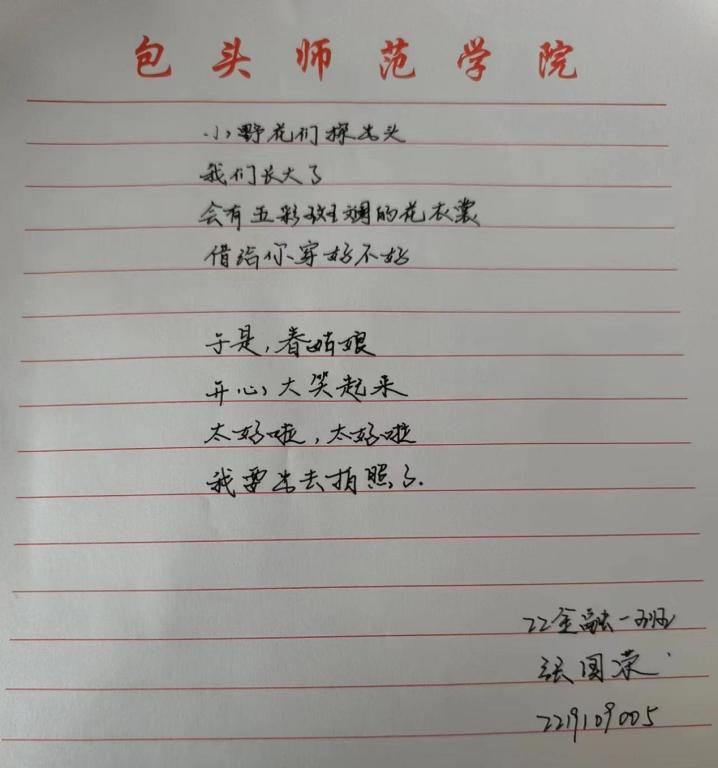 包头师范学院
小野花们探出头
我们长大了
会有五彩斑斓的花衣裳
借给你穿好不好
于是,春姑娘
开心大笑起来
太好啦,太好啦
我要出去拍照了.
22金融一班
张国荣
2219109005